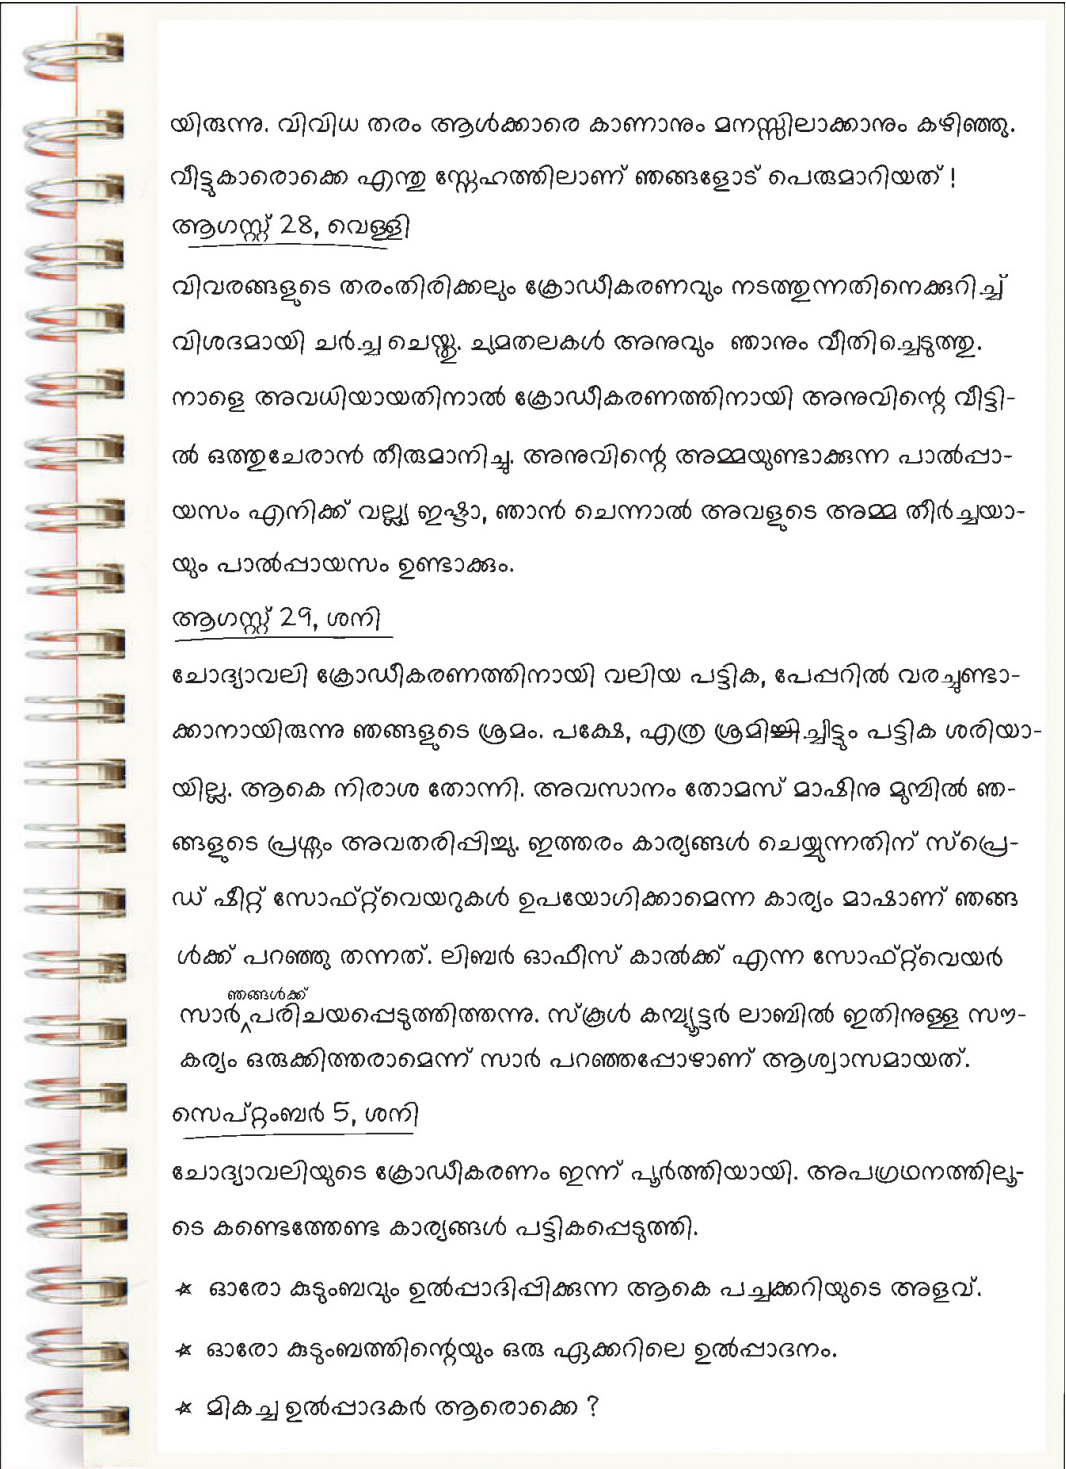 യിരുന്നു. വിവിധ തരം ആൾക്കാരെ കാണാനും മനസ്സിലാക്കാനും കഴിഞ്ഞു.
വീട്ടുകാരൊക്കെ എന്തു സ്നേഹത്തിലാണ് ഞങ്ങളോട് പെരുമാറിയത് !
ആഗസ്റ്റ് 28, വെള്ളി
വിവരങ്ങളുടെ തരംതിരിക്കലും ക്രോഡീകരണവും നടത്തുന്നതിനെക്കുറിച്ച്
വിശദമായി ചർച്ച ചെയ്തു. ചുമതലകൾ അനുവും ഞാനും വീതിച്ചെടുത്തു.
നാളെ അവധിയായതിനാൽ ക്രോഡീകരണത്തിനായി അനുവിന്റെ വീട്ടി-
ൽ ഒത്തുചേരാൻ തീരുമാനിച്ചു. അനുവിന്റെ അമ്മയുണ്ടാക്കുന്ന പാൽപ്പാ-
യസം എനിക്ക് വല്ല്യ ഇഷ്ടാ, ഞാൻ ചെന്നാൽ അവളുടെ അമ്മ തീർച്ചയാ-
യും പാൽപ്പായസം ഉണ്ടാക്കും.
ആഗസ്റ്റ് 29, ശനി
ചോദ്യാവലി ക്രോഡീകരണത്തിനായി വലിയ പട്ടിക, പേപ്പറിൽ വരച്ചുണ്ടാ-
ക്കാനായിരുന്നു ഞങ്ങളുടെ ശ്രമം. പക്ഷേ, എത്ര ശ്രമിച്ചിട്ടും പട്ടിക ശരിയാ-
യില്ല. ആകെ നിരാശ തോന്നി. അവസാനം തോമസ് മാഷിനു മുമ്പിൽ ഞ-
ങ്ങളുടെ പ്രശ്നം അവതരിപ്പിച്ചു. ഇത്തരം കാര്യങ്ങൾ ചെയ്യുന്നതിന് സ്പ്രെ-
ഡ് ഷീറ്റ് സോഫ്റ്റ്‌വെയറുകൾ ഉപയോഗിക്കാമെന്ന കാര്യം മാഷാണ് ഞങ്ങ
ൾക്ക് പറഞ്ഞു തന്നത്. ലിബർ ഓഫീസ് കാൽക്ക് എന്ന സോഫ്റ്റ്‌വെയർ
സാർ ഞങ്ങൾക്ക് പരിചയപ്പെടുത്തിത്തന്നു. സ്കൂൾ കമ്പ്യൂട്ടർ ലാബിൽ ഇതിനുള്ള സൗ-
കര്യം ഒരുക്കിത്തരാമെന്ന് സാർ പറഞ്ഞപ്പോഴാണ് ആശ്വാസമായത്.
സെപ്റ്റംബർ 5, ശനി
ചോദ്യാവലിയുടെ ക്രോഡീകരണം ഇന്ന് പൂർത്തിയായി. അപഗ്രഥനത്തിലൂ-
ടെ കണ്ടെത്തേണ്ട കാര്യങ്ങൾ പട്ടികപ്പെടുത്തി.
* ഓരോ കുടുംബവും ഉൽപ്പാദിപ്പിക്കുന്ന ആകെ പച്ചക്കറിയുടെ അളവ്.
* ഓരോ കുടുംബത്തിന്റെയും ഒരു ഏക്കറിലെ ഉൽപ്പാദനം.
* മികച്ച ഉൽപ്പാദകർ ആരൊക്കെ ?